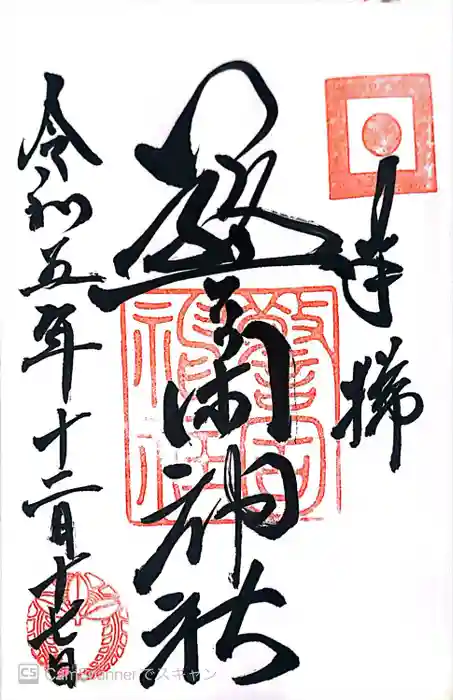 奉拝
警固神社
令和五年十二月十七日
警固
神社
CS CamScanner でスキャン